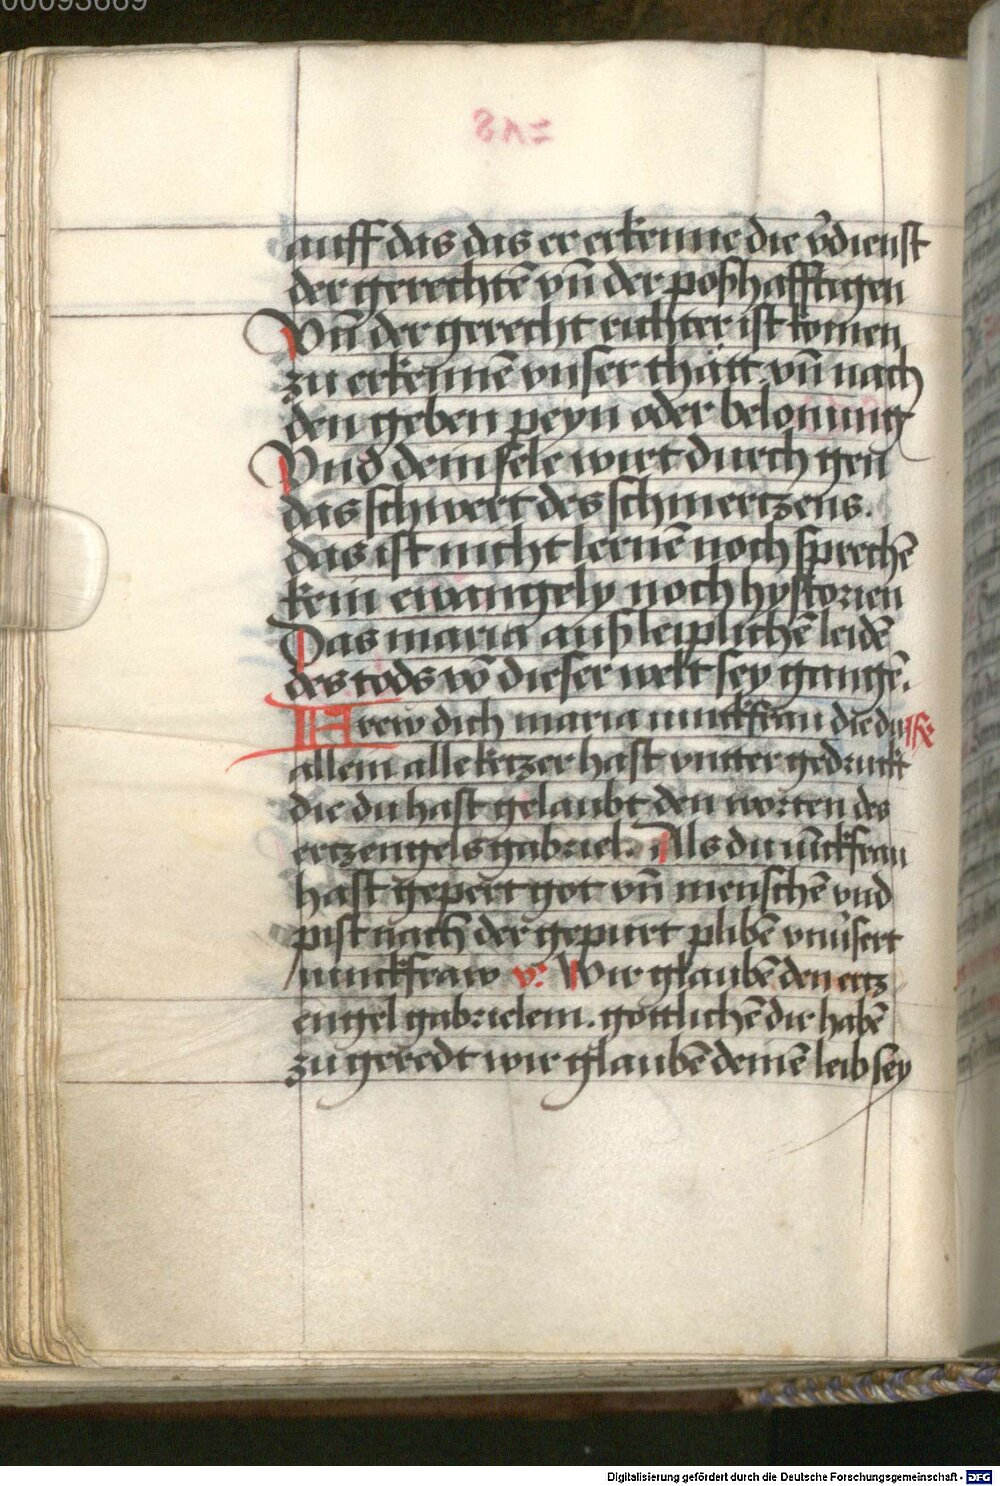 00093669
auff das das er erkenne die v̄dienst
der gerechtē vn̄ der poßhafftigen
Vn̄ der gerecht richter ist komen
zu erkennē vnser thatt vn̄ nach
den geben peyn oder belonung
Vnd dein sele wirt durch gen
das schwert des schmertzens.
das ist nicht lernē noch sprechē
kein ewangely noch hystorien
Das maria auß leiplichē leidē
des tods vō dieser welt sey gangē.
Frew dich maria iunckfrau die du
allein alle ketzer hast vntter gedruckt
die du hast gelaubt den worten des
ertzengels gabriel. Als du iūckfrau
hast gepert got vn̄ menschē vnd
pist nach der gepurt plibē vnu̇sert
iunckfraw v: Wir glaubē den ertz
engel gabrielem. gottlichē dir habē
zu geredt wir glaubē deinē leib sey
Digitalisierung gefördert durch die Deutsche Forschungsgemeinschaft - DFG